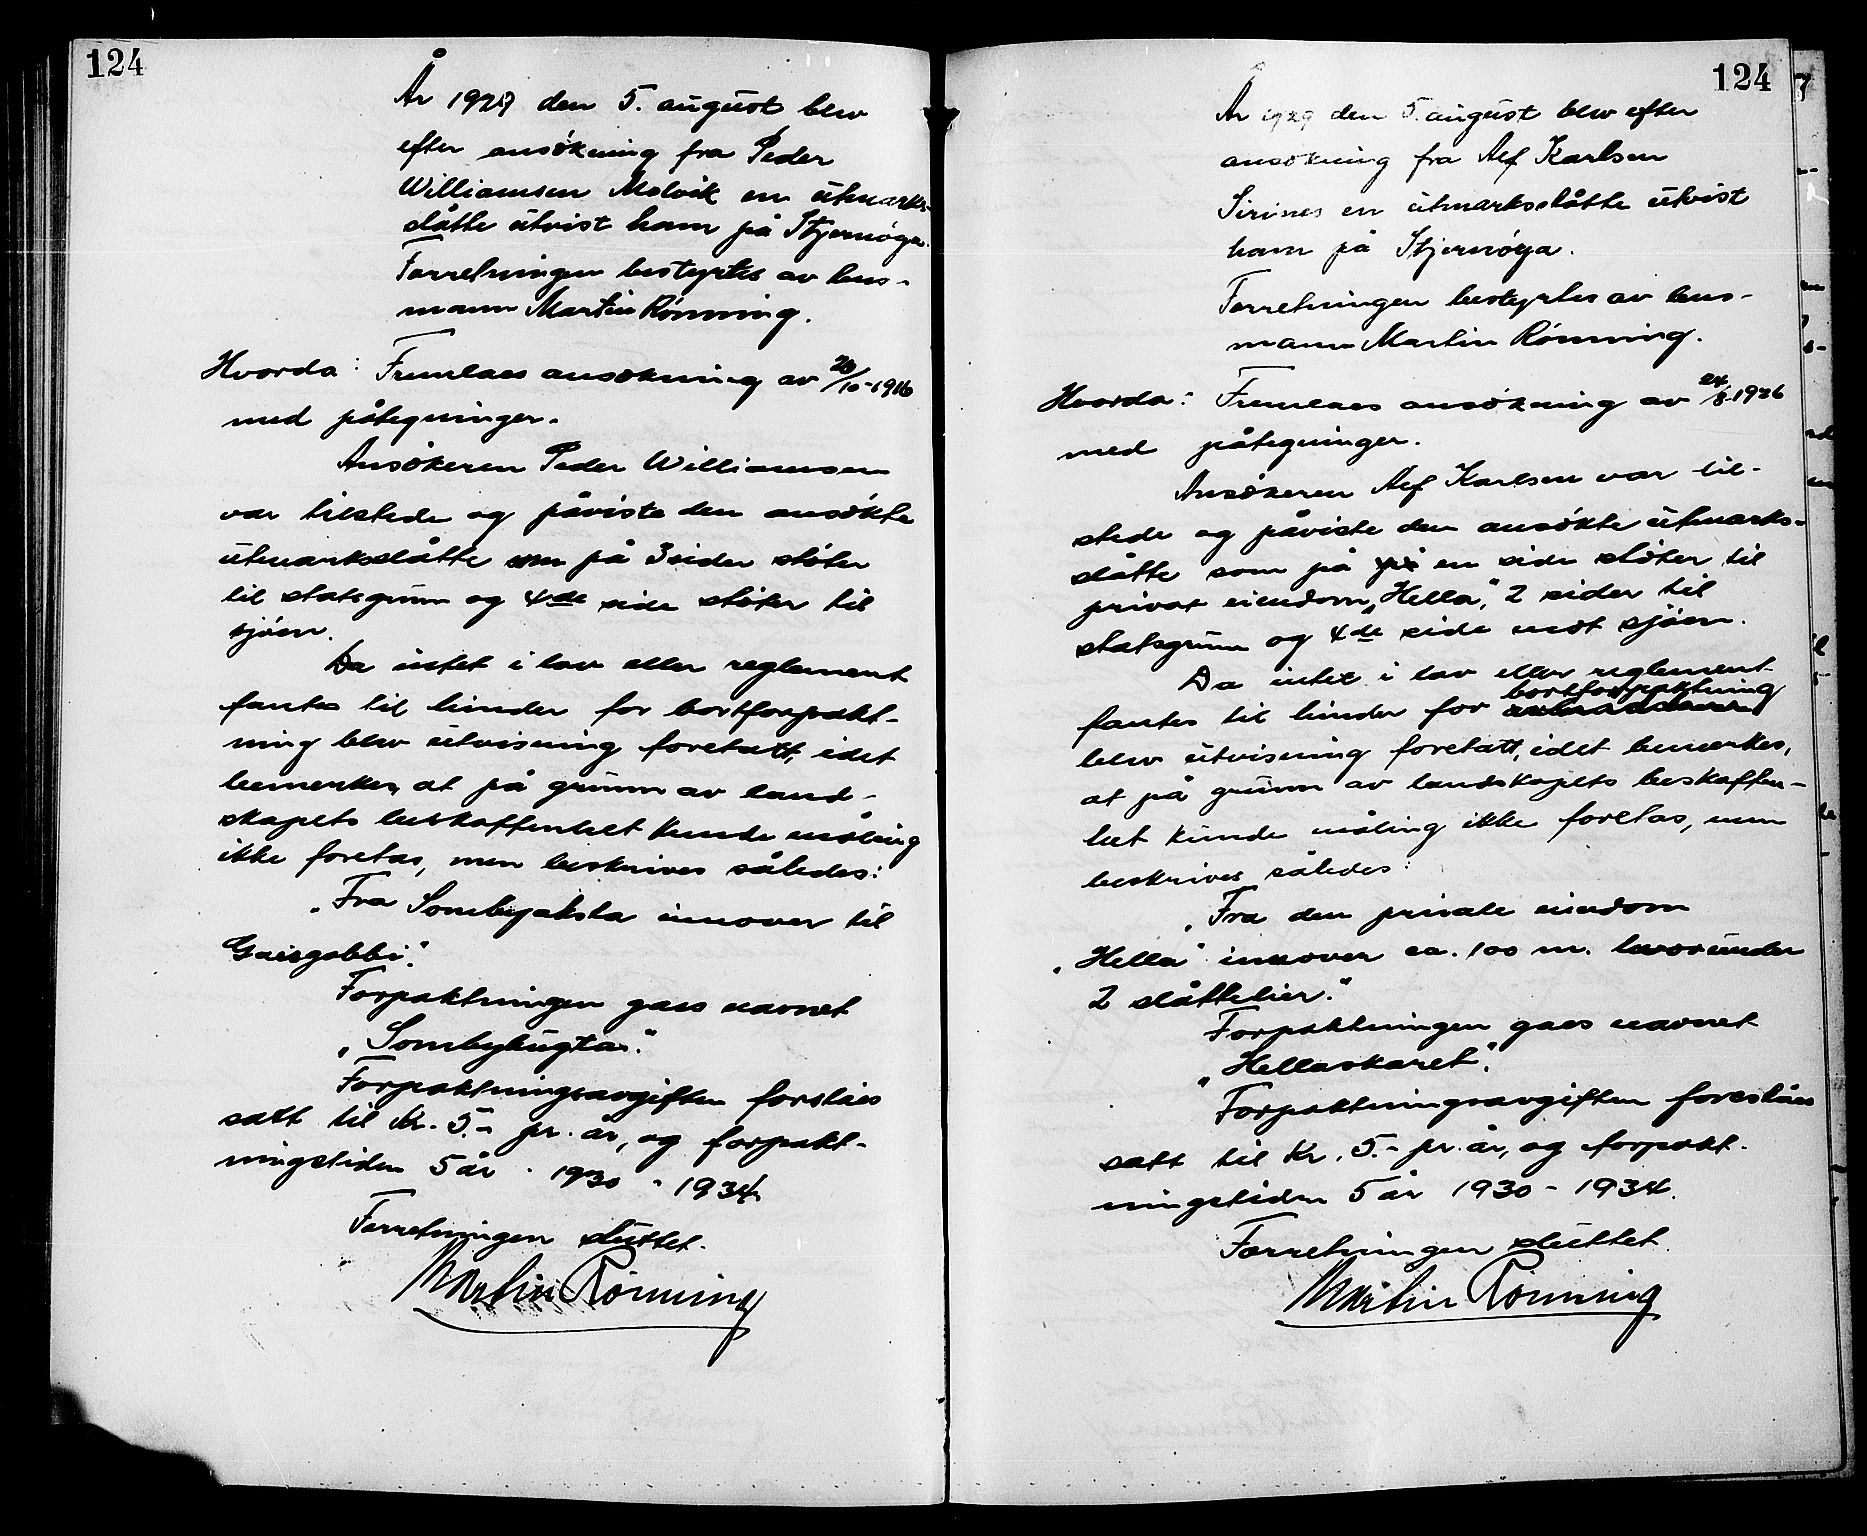 124
År 1929 den 5. august blev
efter ansökning fra Peder
Williamsen Malvik en utmarks-
slåtte utvist ham på Stjernöya.
Forretningen bestyrtes av lens-
mann Martin Rönning.
Hvorda: Fremlaes ansökning av 20/10-1926
med påtegninger.
Ansökeren Peder Williamsen
var tilstede og påviste den ansökte
utmarkslåtte som på 3 sider stöter
til statsgrunn og 4de side stöter til
sjöen.
Da intet i lov eller reglement
fantes til hinder for bortforpakt-
ning blev utvisning foretatt, idet
bemerkes, at på grunn av land-
skapets beskaffenhet kunde måling
ikke foretas, men beskrives således:
„Fra Sombyaksla innover til
Gaisgobbi."
Forpaktningen gaes navnet
„Sombybugta".
Forpaktningsavgiften forslåes
satt til kr. 5.- pr. år, og forpakt-
ningstiden 5 år - 1930 - 1934.
Forretningen sluttet.
Martin Rönning
124
År 1929 den 5. august blev efter
ansökning fra Alf Karlsen
Sirines en utmarksslåtte utvist
ham på Stjernöya.
Forretningen bestyrtes av lens-
mann Martin Rönning.
Hvorda: Fremlaes ansökning av 24/8-1926
med påtegninger.
Ansökeren Alf Karlsen var til-
stede og påviste den ansökte utmarks-
slåtte som på en side stöter til
privat eiendom „Hella", 2 sider til
statsgrunn og 4de side mot sjöen.
Da intet i lov eller reglement
fantes til hinder for bortforpaktning
blev utvisning foretatt, idet bemerkes,
at på grunn av landskapets beskaffen-
het kunde måling ikke foretas, men
beskrives således:
„Fra den private eiendom
„Hella" innover ca. 100 m. hvorunder
2 slåttelier."
Forpaktningen gaes navnet
„Hellaskaret".
Forpaktningsavgiften foreslåes
satt til kr. 5.- pr. år, og forpakt-
ningstiden 5 år 1930 - 1934.
Forretningen sluttet.
Martin Rönning